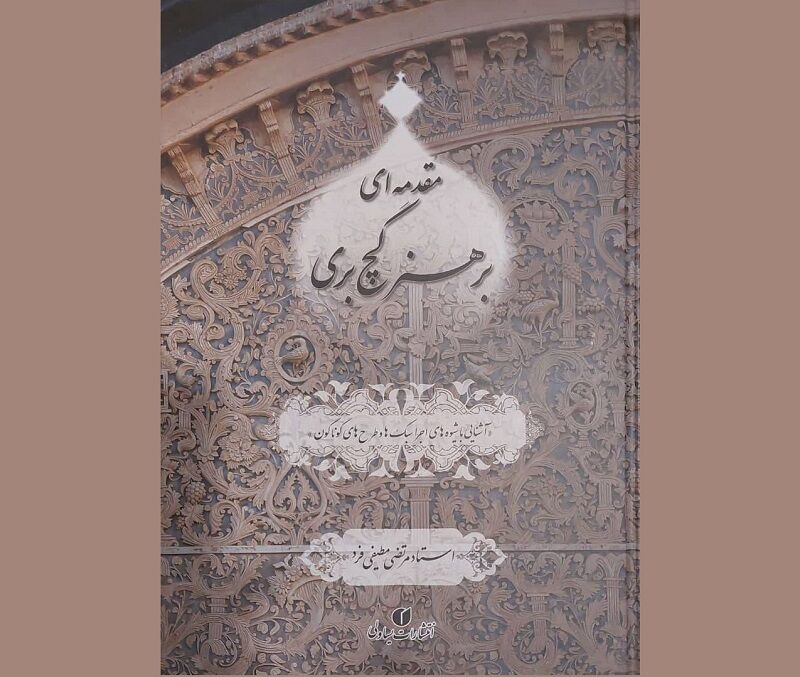 مقدمه ای
بر هنر گچ بری
«آشنایی با شیوه های اجرا، سبک ها و طرح های گوناگون»
استاد مرتضی لطیفی فرد
انتشارات یساولی